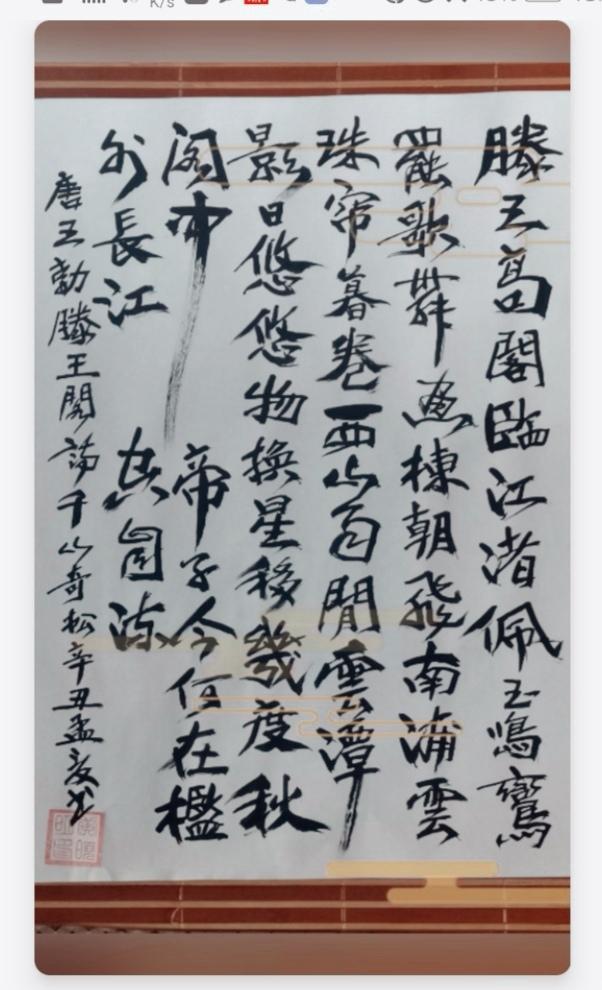 K/s
滕王高閣臨江渚佩玉鳴鸞
罷歌舞画棟朝飛南浦雲
珠帘暮卷西山雨閒雲潭
影日悠悠物換星移幾度秋
阁中帝子今何在檻
外長江空自流
唐王勃滕王閣詩千山奇松辛丑孟夏书